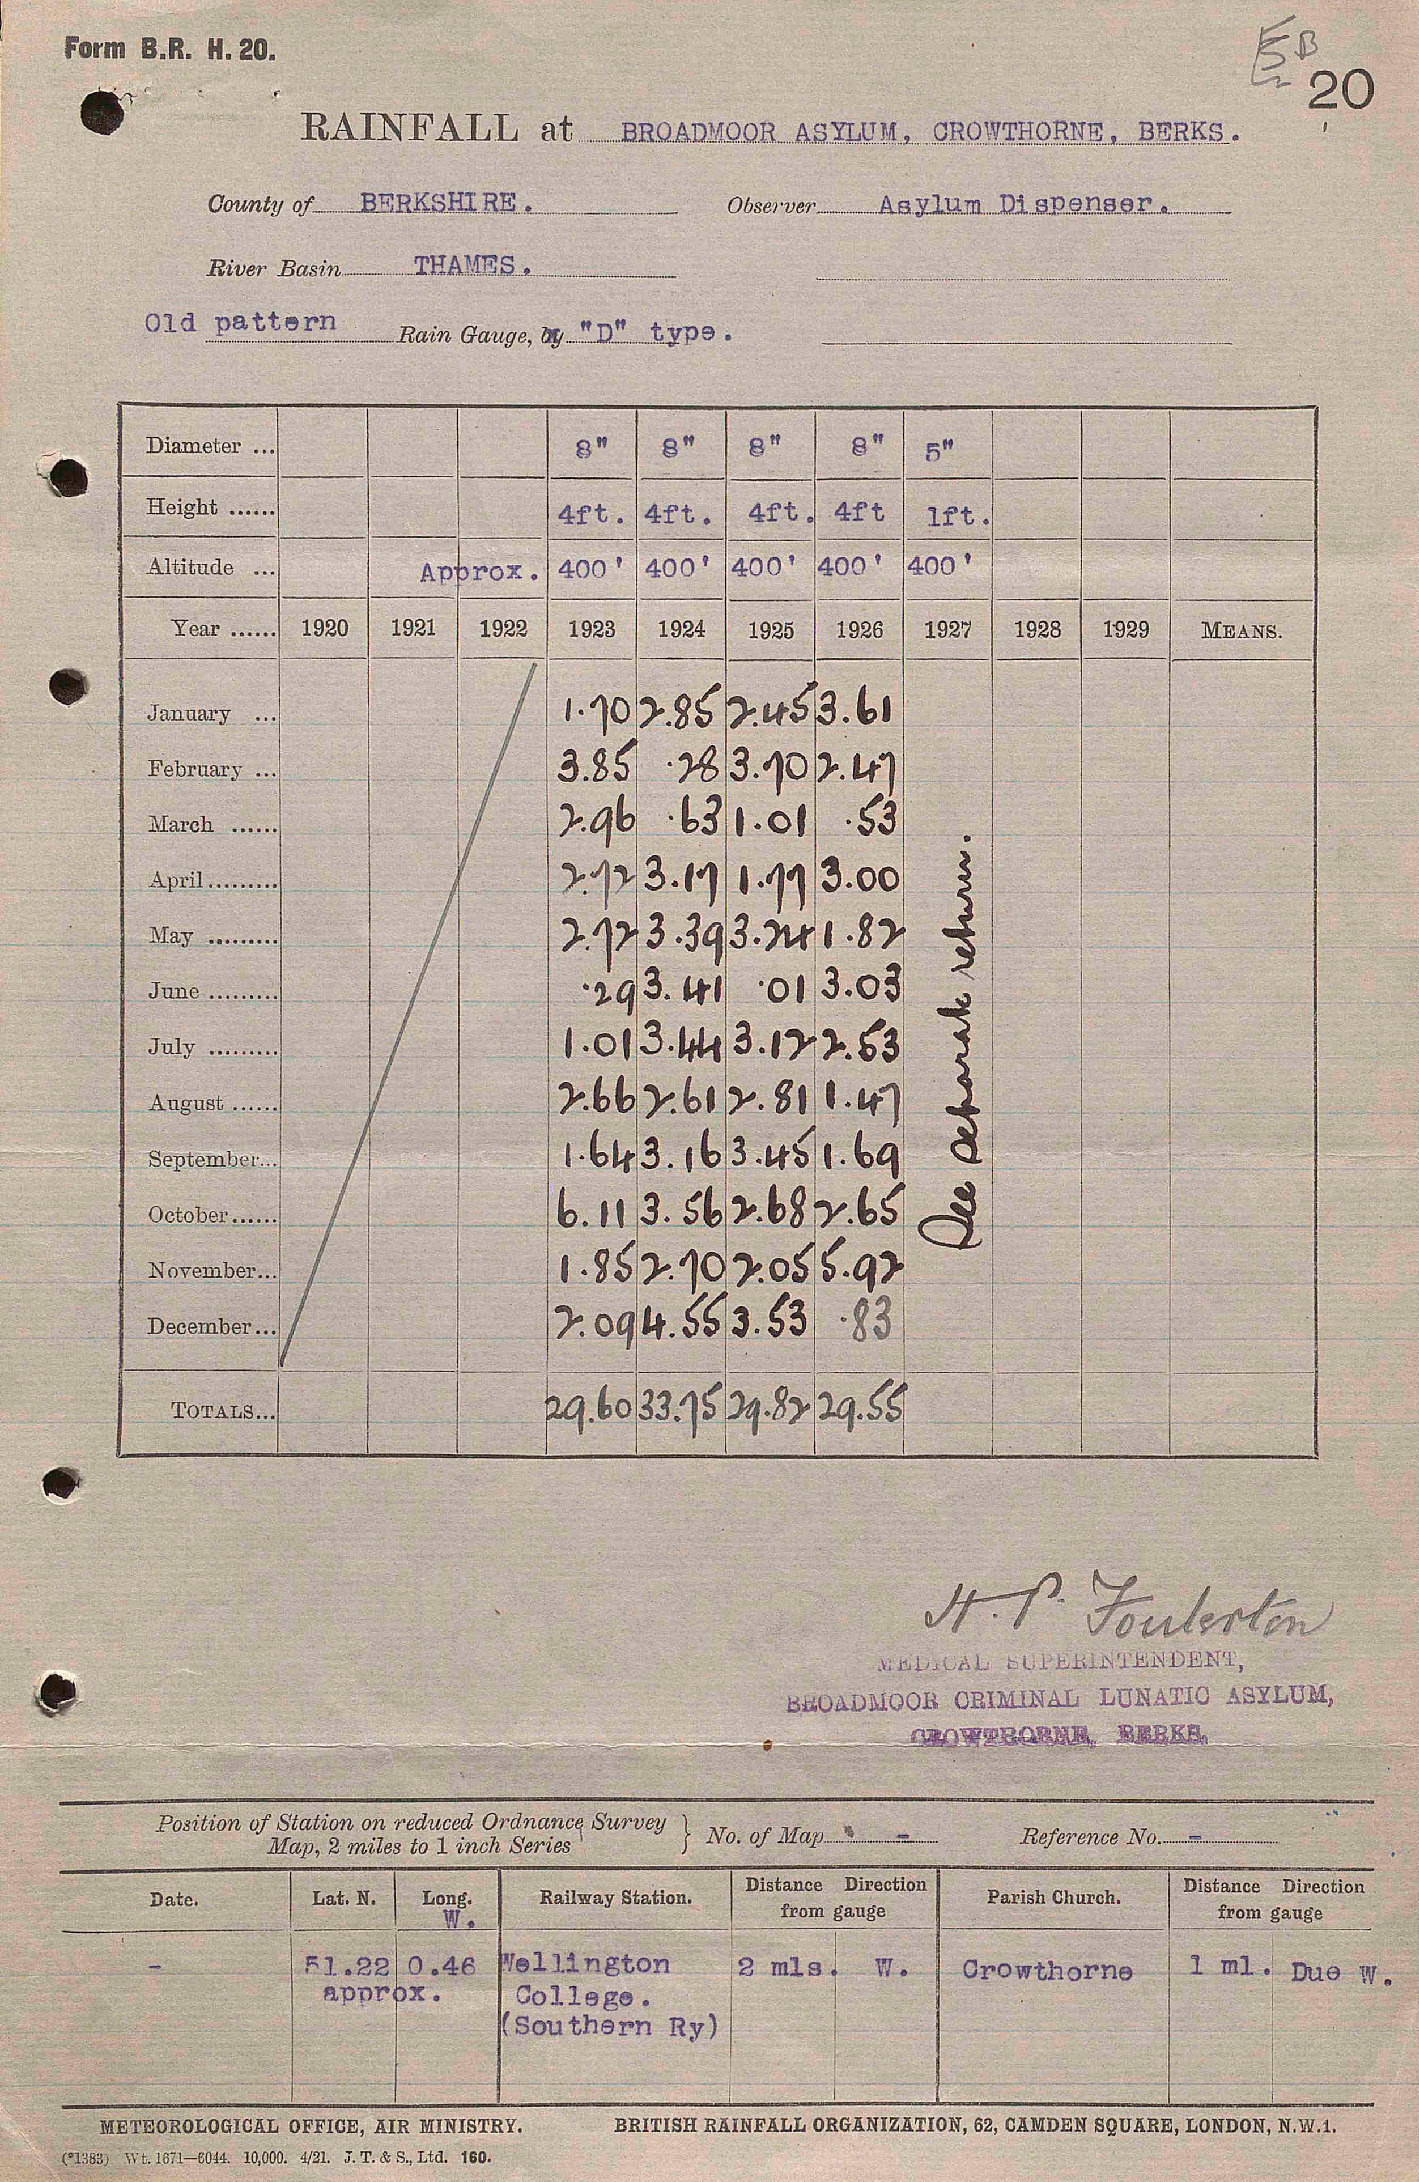 Form B.R. H. 20.
20
RAINFALL at BROADMOOR ASYLUM, CROWTHORNE, BERKS.
County of BERKSHIRE. Observer Asylum Dispenser.
River Basin THAMES.
Old pattern Rain Gauge, by "D" type.
Diameter ... 8" 8" 8" 8" 5"
Height ...... 4ft. 4ft. 4ft. 4ft 1ft.
Altitude ... Approx. 400' 400' 400' 400' 400'
Year ...... 1920 1921 1922 1923 1924 1925 1926 1927 1928 1929 MEANS.
January ... 1.70 2.85 2.45 3.61
February ... 3.85 .28 3.70 2.47
March ...... 2.96 .63 1.01 .53
April ......... 2.72 3.17 1.77 3.00
May ......... 2.72 3.39 3.24 1.82
June ......... .29 3.41 .01 3.03
July ......... 1.01 3.44 3.12 2.53
August ...... 2.66 2.61 2.81 1.47
September... 1.64 3.16 3.45 1.69
October...... 6.11 3.56 2.68 2.65
November... 1.85 2.70 2.05 5.92
December... 2.09 4.55 3.53 .83
See separate return.
TOTALS... 29.60 33.75 29.82 29.55
H. P. Foulerton
MEDICAL SUPERINTENDENT,
BROADMOOR CRIMINAL LUNATIC ASYLUM,
CROWTHORNE, BERKS.
Position of Station on reduced Ordnance Survey
Map, 2 miles to 1 inch Series } No. of Map - Reference No. -
Date. Lat. N. Long. W. Railway Station. Distance Direction from gauge Parish Church. Distance Direction from gauge
- 51.22 0.46 Wellington 2 mls. W. Crowthorne 1 ml. Due W.
approx. College.
(Southern Ry)
METEOROLOGICAL OFFICE, AIR MINISTRY. BRITISH RAINFALL ORGANIZATION, 62, CAMDEN SQUARE, LONDON, N.W.1.
(*1383) Wt. 1671—6044. 10,000. 4/21. J. T. & S., Ltd. 160.